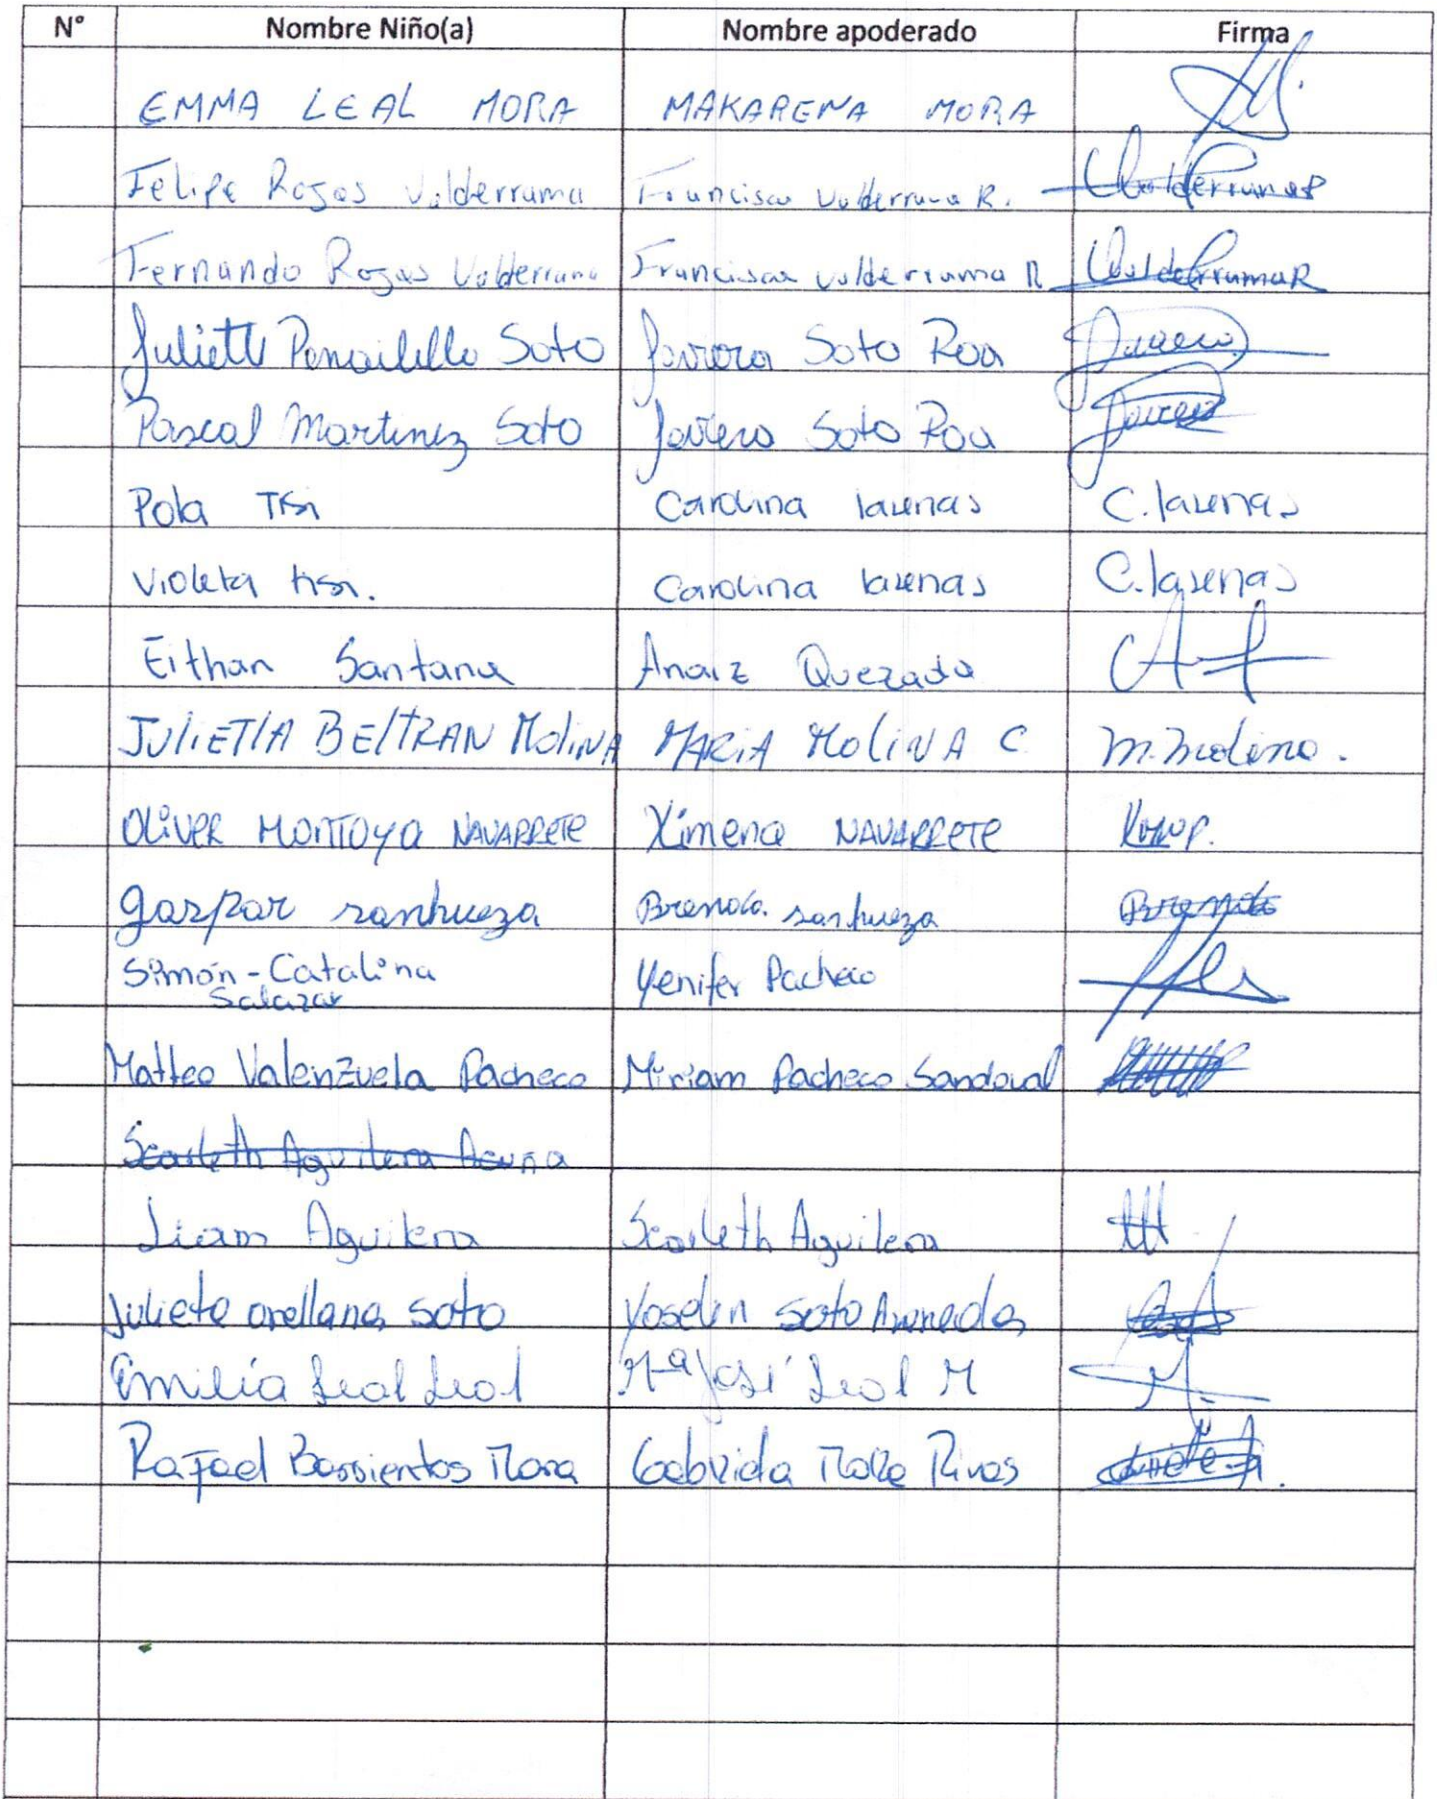 N° Nombre Niño(a) Nombre apoderado Firma
EMMA LEAL MORA MAKARENA MORA
Felipe Rojas Valderrama Francisca Valderrama R. ValderramaR
Fernando Rojas Valderrama Francisca Valderrama R ValderramaR
Juliett Penailillo Soto Javiera Soto Roa Javiera
Pascal Martinez Soto Javiera Soto Roa Javiera
Pola Carolina lasenas C. lasenas
Violeta Carolina lasenas C. lasenas
Eithan Santana Anaiz Quezada
JULIETTA BELTRAN MOLINA MARIA MOLINA C M. Molina.
OLIVER MONTOYA NAVARRETE Ximena NAVARRETE
gaspar sanhueza Brenda. sanhueza Brenda
Simón - Catalina Yenifer Pacheco
Salazar
Matteo Valenzuela Pacheco Miriam Pacheco Sandoval
Scarleth Aguilera Acuna
Liam Aguilera Scarleth Aguilera
Julieta orellana soto Yoselin soto Araneda
Emilia Leal Leal Mª José Leal M
Rafael Barrientos Mora Gabriela Mora Rivas